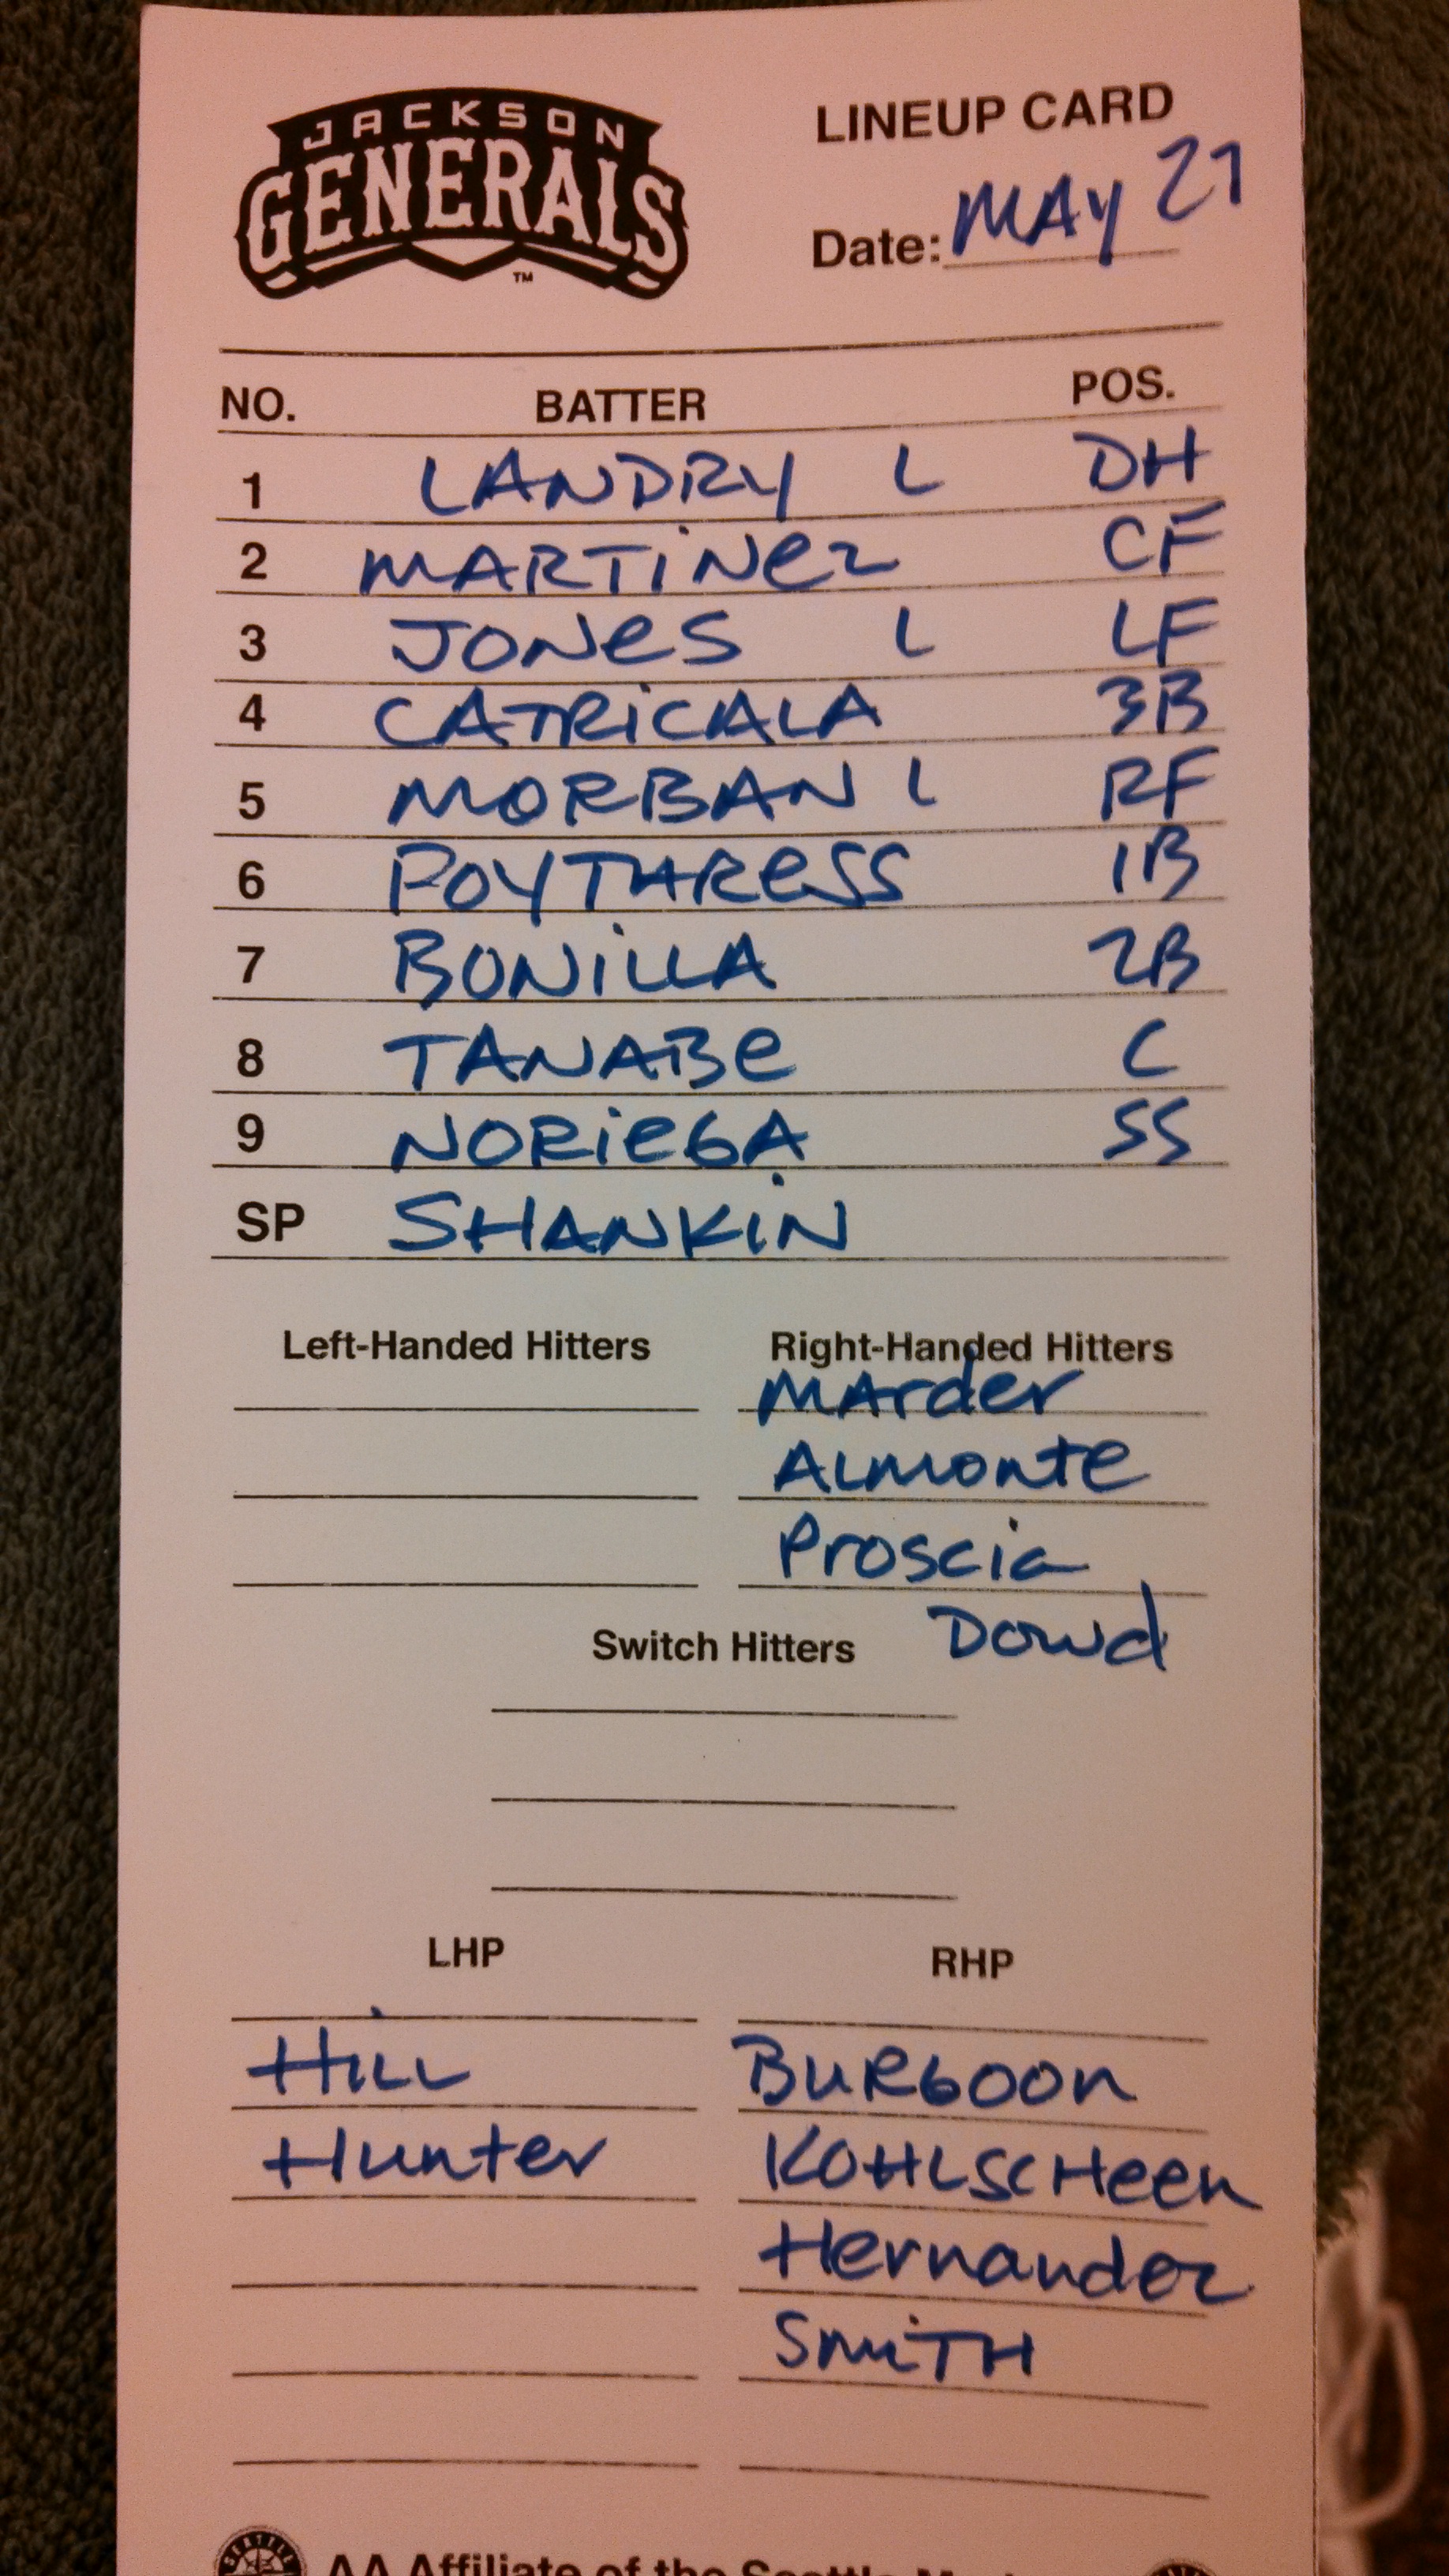 JACKSON
GENERALS
TM
LINEUP CARD
Date: MAY 21
NO. BATTER POS.
1 LANDRY L DH
2 MARTiNez CF
3 JONeS L LF
4 CATRiCALA 3B
5 MORBAN L RF
6 POYTHReSS 1B
7 BONiLLA 2B
8 TANABe C
9 NORieGA SS
SP SHANKiN
Left-Handed Hitters Right-Handed Hitters
MArder
ALmonte
Proscia
Dowd
Switch Hitters
LHP RHP
HiLL BuRGoon
Hunter KOHLSCHeen
Hernandez
SmiTH
SEATTLE
AA Affiliate of the Seattle